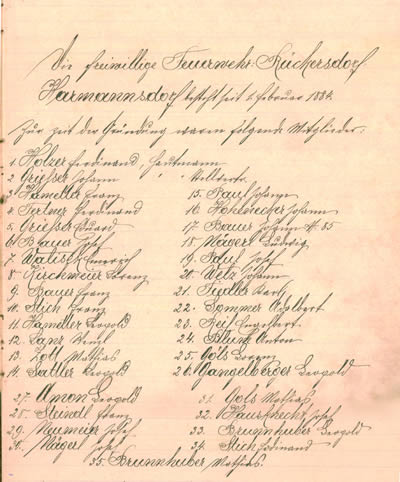 Die freiwillige Feuerwehr: Rückersdorf
Harmannsdorf besteht seit 2. Februar 1884.
Zur zeit der Gründung waren folgende Mitglieder.
1 Holzer Ferdinand, Hautmann
2 Griesser Johann
3 Hameller Franz
4 Ferdinand
5. Griesser Eduard
6. Bayer Josef
7
8 Kirchmeier Lorenz
9. Bayer Franz
10. Stich Franz
11 Hameller Leopold
12. Wenzl
13. Zott Mathias
14. Sattler Leopold
15. Paul Johann
16 Johann
17 Bauer Johann N. 85
18. Mägerl Ludwig
19. Josef
20. Welz Johann
21. Fiedler Karl
22. Sommer Adalbert
23. Reif Engelbert
24. Blum Anton
25. Göls Lorenz
26. Gangelberger Leopold
27. Amon Leopold
28. Steindl Franz
29. Neumeier Josef
30. Mägerl Josef
31. Göls Mathias
32. Hausknecht Josef
33. Brunnhuber Leopold
34. Stich Ferdinand
35. Brunnhuber Mathias.